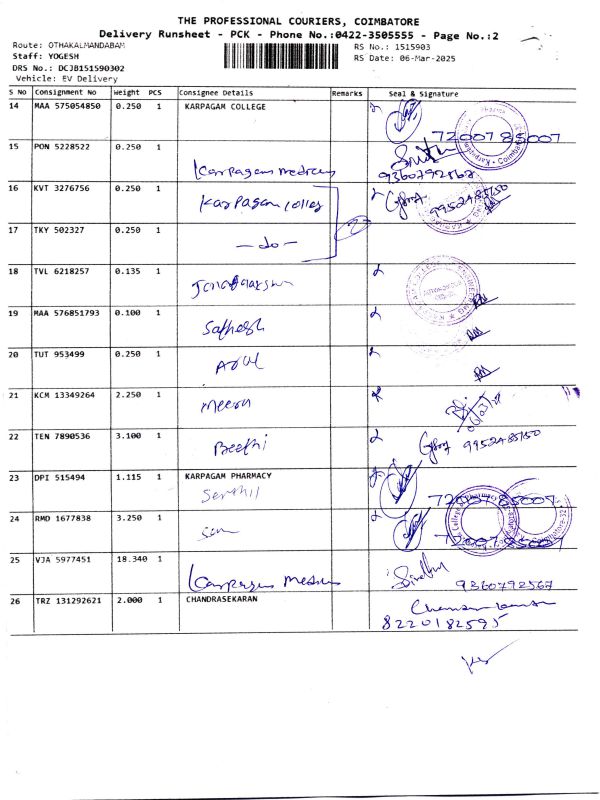 THE PROFESSIONAL COURIERS, COIMBATORE
Delivery Runsheet - PCK - Phone No.:0422-3505555 - Page No.:2
Route: OTHAKALMANDABAM
RS No.: 1515903
Staff: YOGESH
RS Date: 06-Mar-2025
DRS No.: DCJB151590302
Vehicle: EV Delivery
S No Consignment No Weight PCS Consignee Details Remarks Seal & Signature
14 MAA 575054850 0.250 1 KARPAGAM COLLEGE
7200785007
15 PON 5228522 0.250 1
Karpagam medicus
9360792567
16 KVT 3276756 0.250 1
Karpagam colleg 9952485150
17 TKY 502327 0.250 1
-do-
18 TVL 6218257 0.135 1
19 MAA 576851793 0.100 1
Sathesh
20 TUT 953499 0.250 1
Arul
21 KCM 13349264 2.250 1
meera
22 TEN 7890536 3.100 1
Beethi 9952485150
23 DPI 515494 1.115 1 KARPAGAM PHARMACY
Senthil 7200785007
24 RMD 1677838 3.250 1
7200785007
25 VJA 5977451 18.340 1
Karpagam Medicus 9360792567
26 TRZ 131292621 2.000 1 CHANDRASEKARAN
8220182595